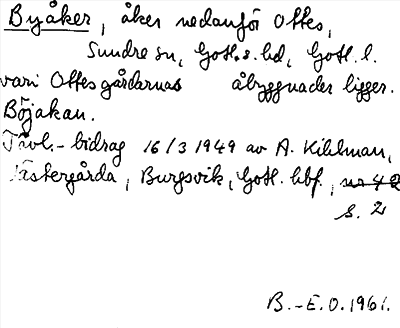 Byåker, åker nedanför Ottes,
Sundre sn, Gotl. s. hd, Gotl. l.
vari Ottesgårdarnas åbyggnader ligger.
Böjakan.
Tävl.-bidrag 16/3 1949 av A. Kihlman,
Västergårda, Burgsvik, Gotl. bbf., nr 42
s. 2
B.-E.O. 1961.